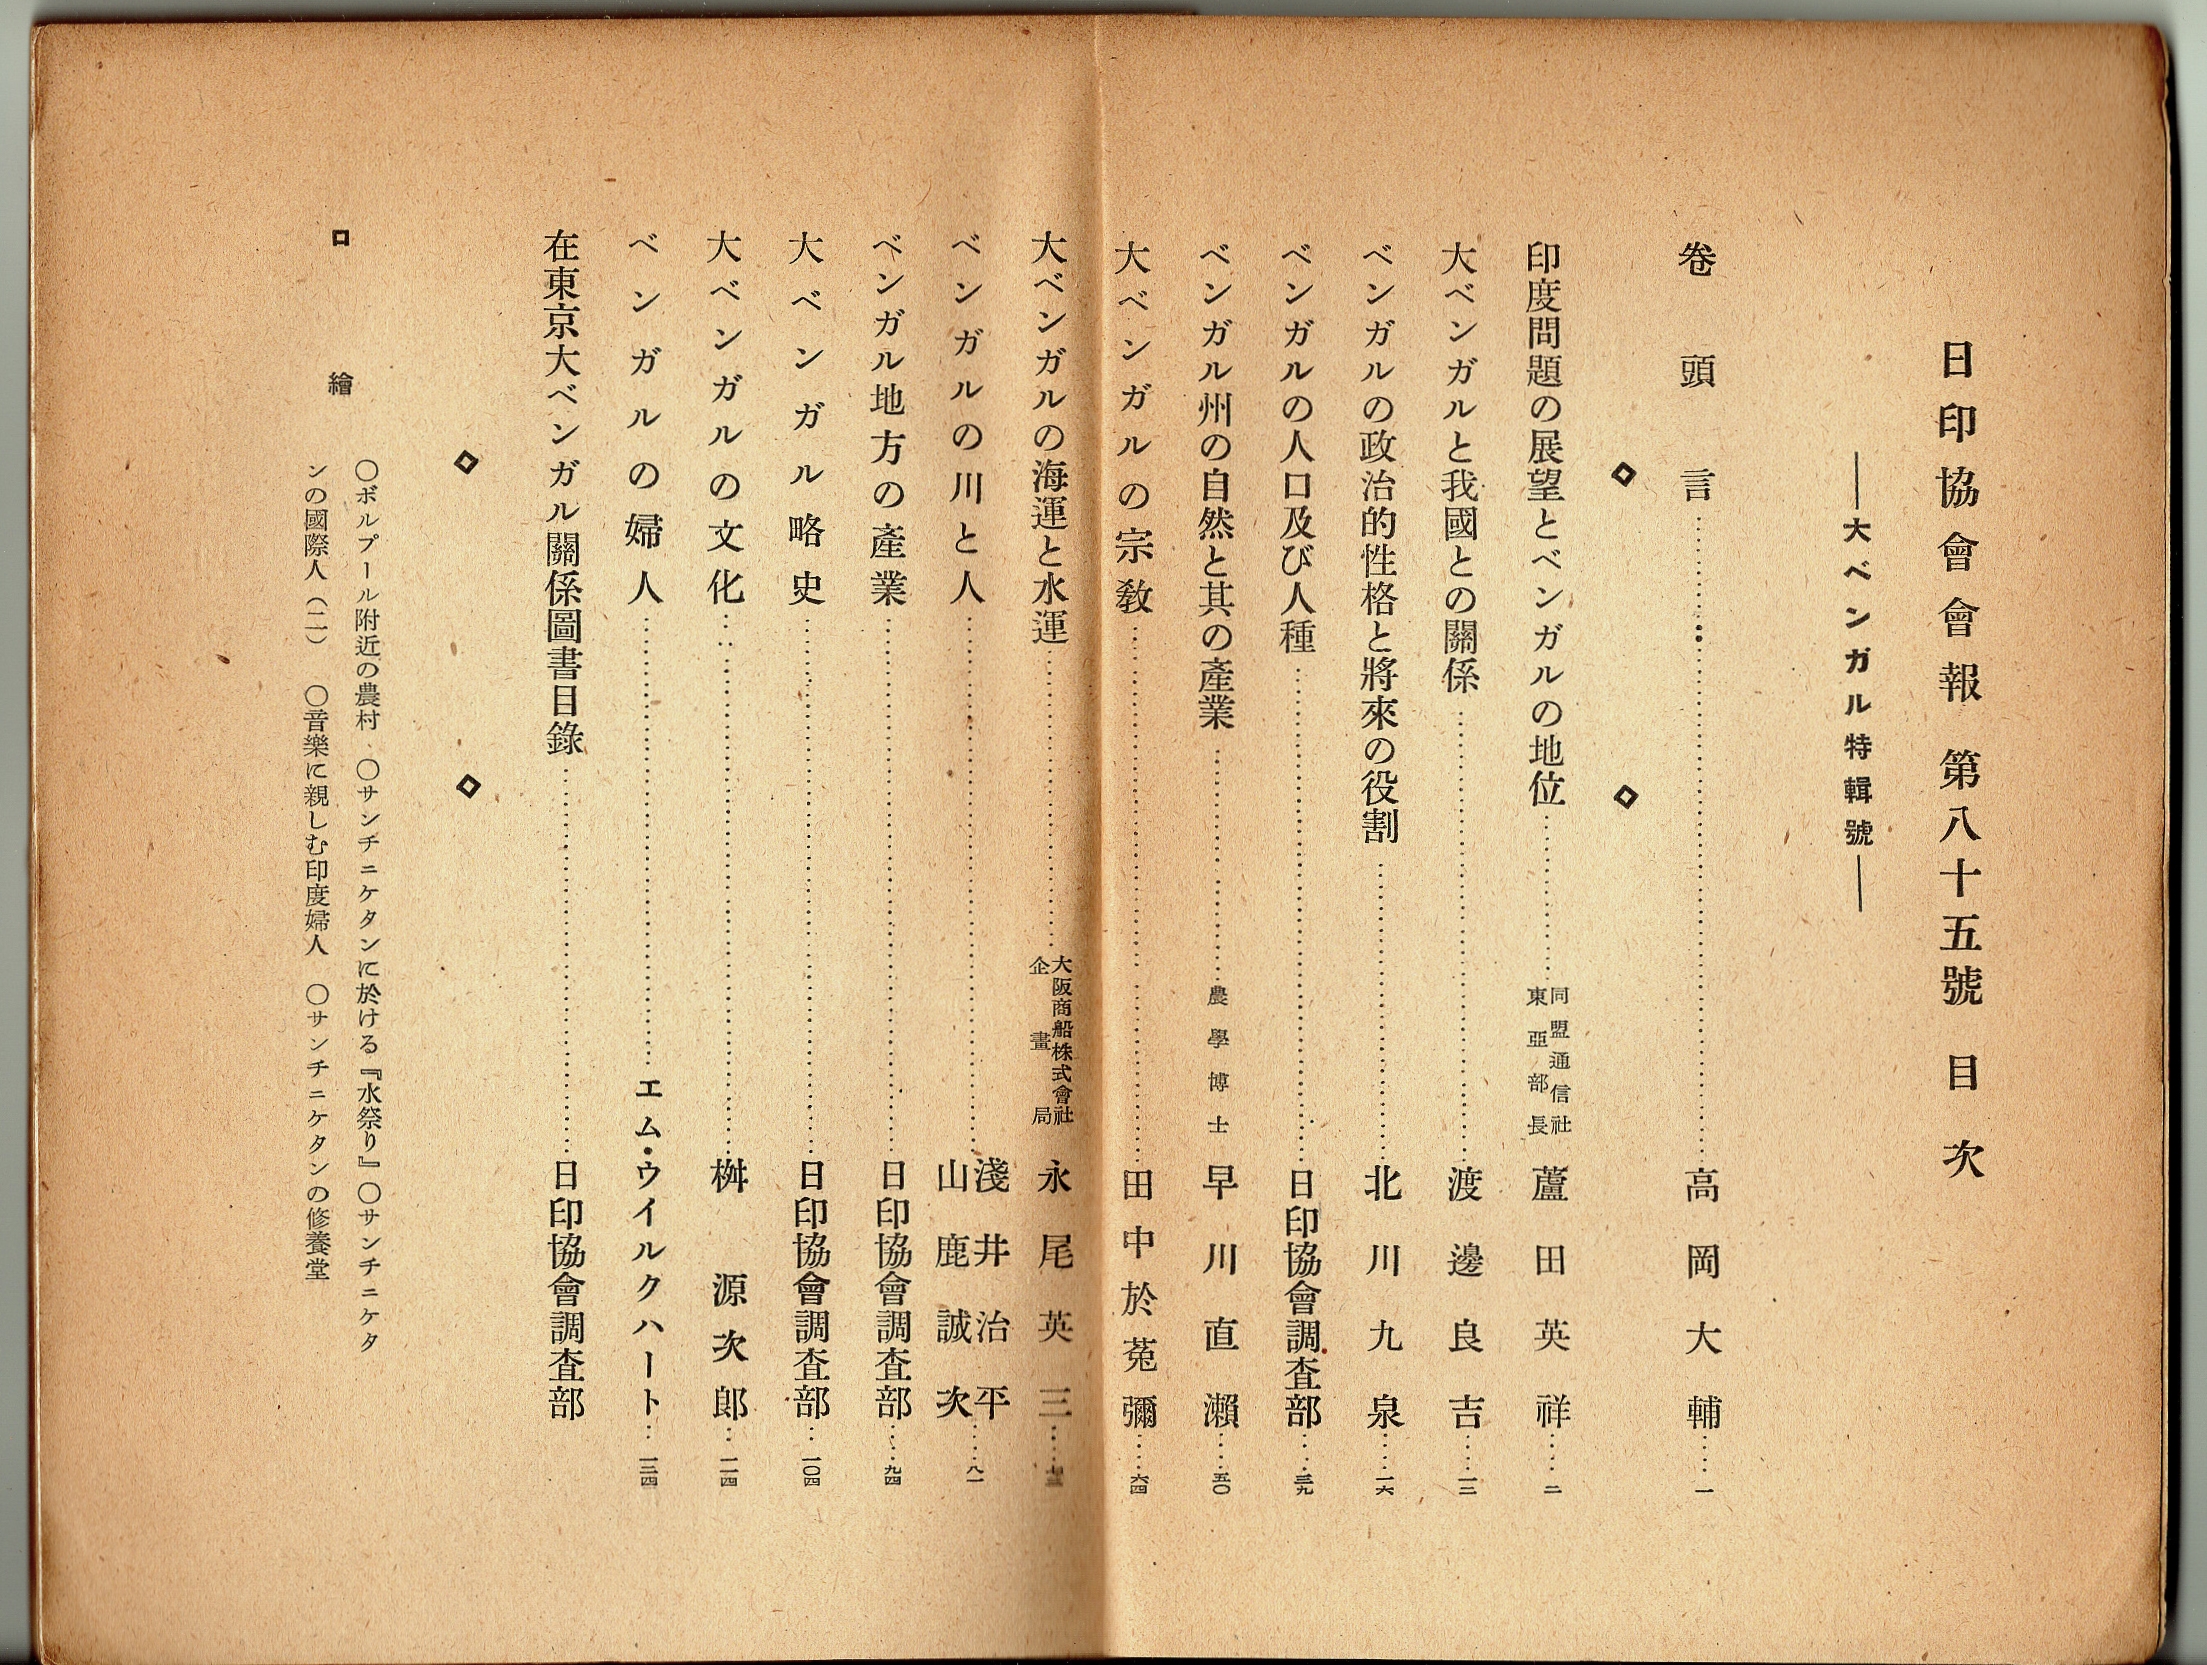 日印協會會報 第八十五號 目次
―大ベンガル特輯號―
卷頭言……高岡大輔……一
◇ ◇
印度問題の展望とベンガルの地位……同盟通信社東亞部長 蘆田英祥……二
大ベンガルと我國との關係……渡邊良吉……一二
ベンガルの政治的性格と將來の役割……北川九泉……一六
ベンガルの人口及び人種……日印協會調査部……三九
ベンガル州の自然と其の產業……農學博士 早川直瀨……五〇
大ベンガルの宗敎……田中於菟彌……六四
大ベンガルの海運と水運……大阪商船株式會社企畫局 永尾英三……
ベンガルの川と人……淺井治平 山鹿誠次……八一
ベンガル地方の產業……日印協會調査部……九四
大ベンガル略史……日印協會調査部……一〇四
大ベンガルの文化……桝源次郎……一一四
ベンガルの婦人……エム・ウイルクハート……一三四
在東京大ベンガル關係圖書目錄……日印協會調査部
◇ ◇
口繪
〇ボルプール附近の農村 〇サンチニケタンに於ける『水祭り』〇サンチニケタ
ンの國際人(二) 〇音樂に親しむ印度婦人 〇サンチニケタンの修養堂